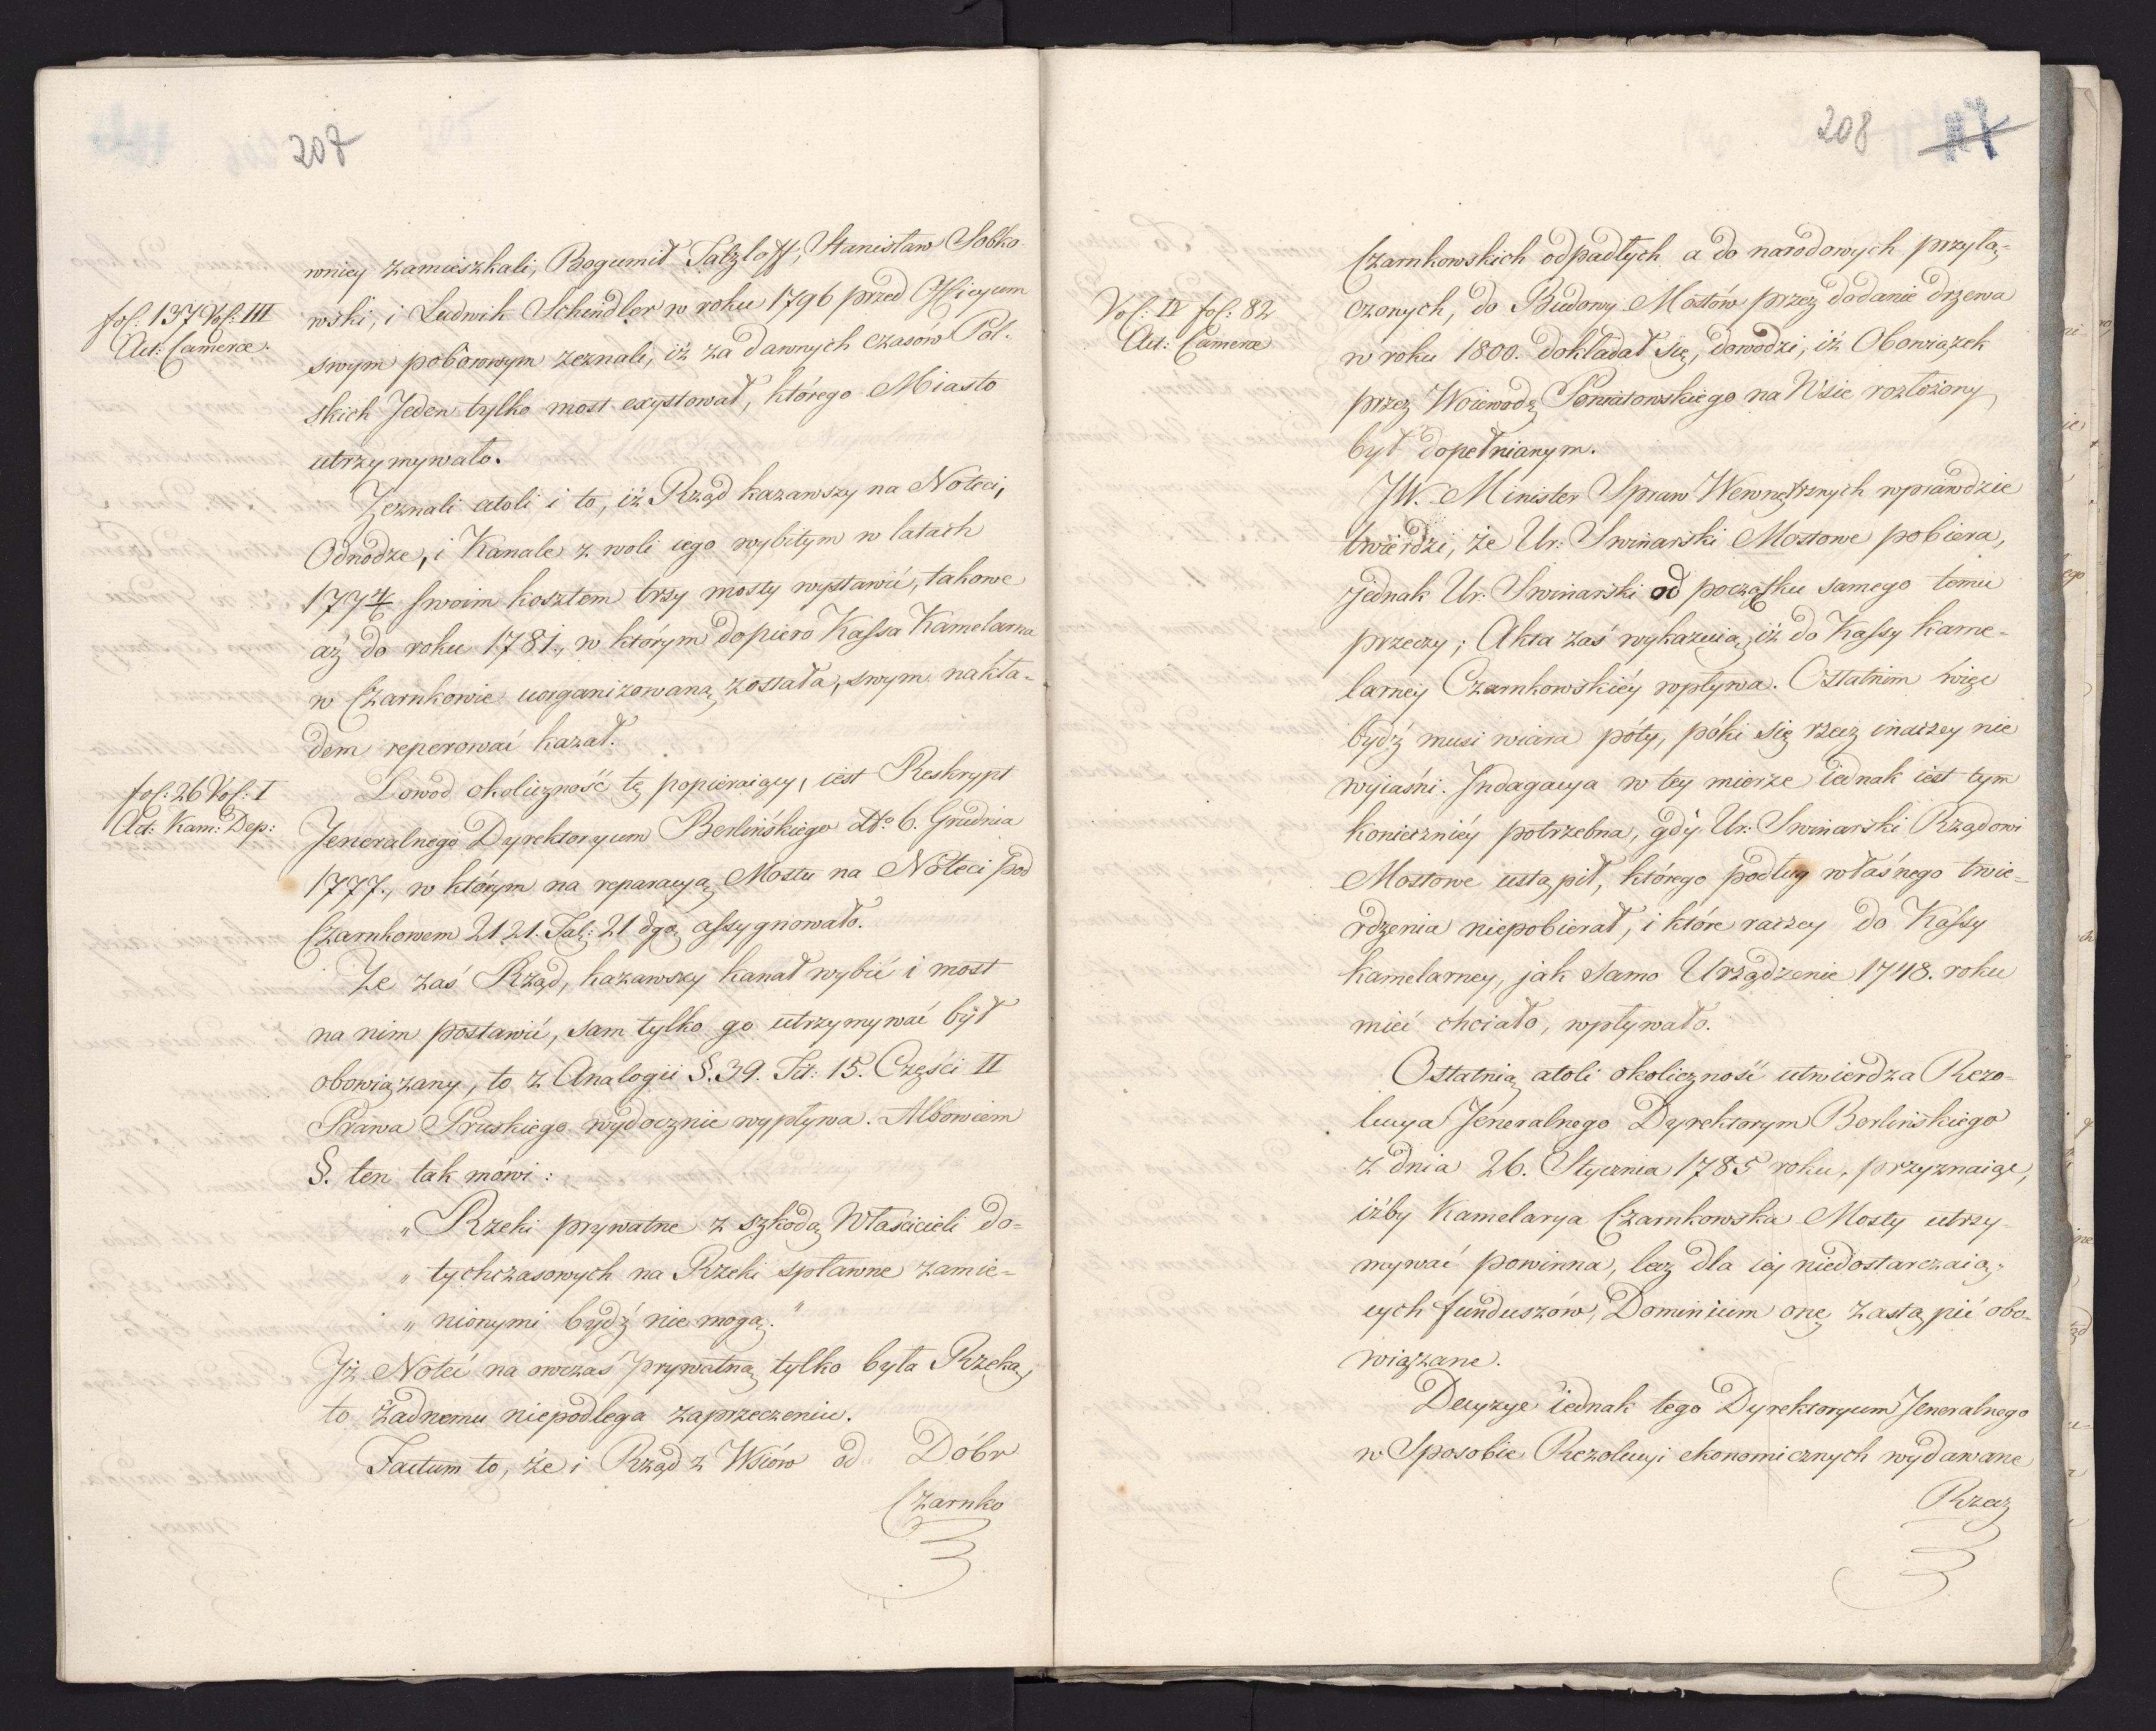 207
wnicy zamieszkali, Bogumił Salzlaff, Stanisław Sobko-
fol: 137 Vol: III
Act: Cameræ.
wski, i Ludwik Schindler w roku 1796 przed Officyum
swym poborowym zeznali, iż za dawnych czasów Pol-
skich Jeden tylko most exystował, którego Miasto
utrzymywało.
Zeznali atoli i to, iż Rząd kazawszy na Noteci,
Odnodze, i Kanale z woli iego wybitym w latach
177 4/6 swoim kosztem trzy mosty wystawić, takowe
aż do roku 1781., w którym dopiero Kassa Kamelarna
w Czarnkowie uorganizowaną została, swym nakła-
dem reperować kazał.
fol: 26 Vol: I
Act: Kam: Dep:
Dowod okoliczność tę popieraiący, iest Reskrypt
Jeneralnego Dyrektoryum Berlińskiego dto 6. Grudnia
1777., w którym na reparacyą Mostu na Noteci pod
Czarnkowem 2121. Tal: 21 dgr assygnowało.
Że zaś Rząd, kazawszy kanał wybić i most
na nim postawić, sam tylko go utrzymywać był
obowiązany, to z Analogii §. 39. Tit: 15. Części II
Prawa Pruskiego wydocznie wypływa. Albowiem
§. ten tak mówi:
„Rzeki prywatne z szkodą Właścicieli do=
„tychczasowych na Rzeki spławne zamie=
„nionymi bydź nie mogą."
Iż Noteć na owczas prywatną tylko była Rzeką,
to żadnemu niepodlega zaprzeczeniu.
Factum to, że i Rząd z Wsiów od Dóbr
Czarnko
208
Czarnkowskich odpadłych a do narodowych przyłą=
Vol: IV fol: 82
Act: Cameræ
czonych, do Budowy Mostów przez dodanie drzewa
w roku 1800. dokładał się, dowodzi, iż Obowiązek
przez Woiewodę Poniatowskiego na Wsie rozłożony
był dopełnianym.
JW. Minister Spraw Wewnętrznych wprawdzie
twierdzi, że Ur: Swinarski Mostowe pobiera,
jednak Ur: Swinarski od początku samego temu
przeczy; Akta zaś wykazuią, iż do Kassy kame-
larnéy Czarnkowskiéy wpływa. Ostatnim więc
bydź musi wiara póty, póki się rzecz inaczey nie
wyjaśni. Indagacya w tey mierze iednak iest tym
konieczniéy potrzebna, gdy Ur: Swinarski Rządowi
Mostowe ustąpił, którego podług własnego twie=
rdzenia niepobierał, i które raczey do Kassy
kamelarney, jak samo Urządzenie 1748. roku
mieć chciało, wpływało.
Ostatnią atoli okoliczność utwierdza Rezo=
lucya Jeneralnego Dyrektorym Berlińskiego
z dnia 26. Stycznia 1785 roku, przyznaiąc,
iżby Kamelarya Czarnkowska Mosty utrzy-
mywać powinna, lecz dla iej niedostarczaią-
cych funduszów, Dominium onę zastąpić obo-
wiązane.
Decyzye iednak tego Dyrektoryum Jeneralnego
w Sposobie Rezolucyi ekonomicznych wydawane
Rzecz